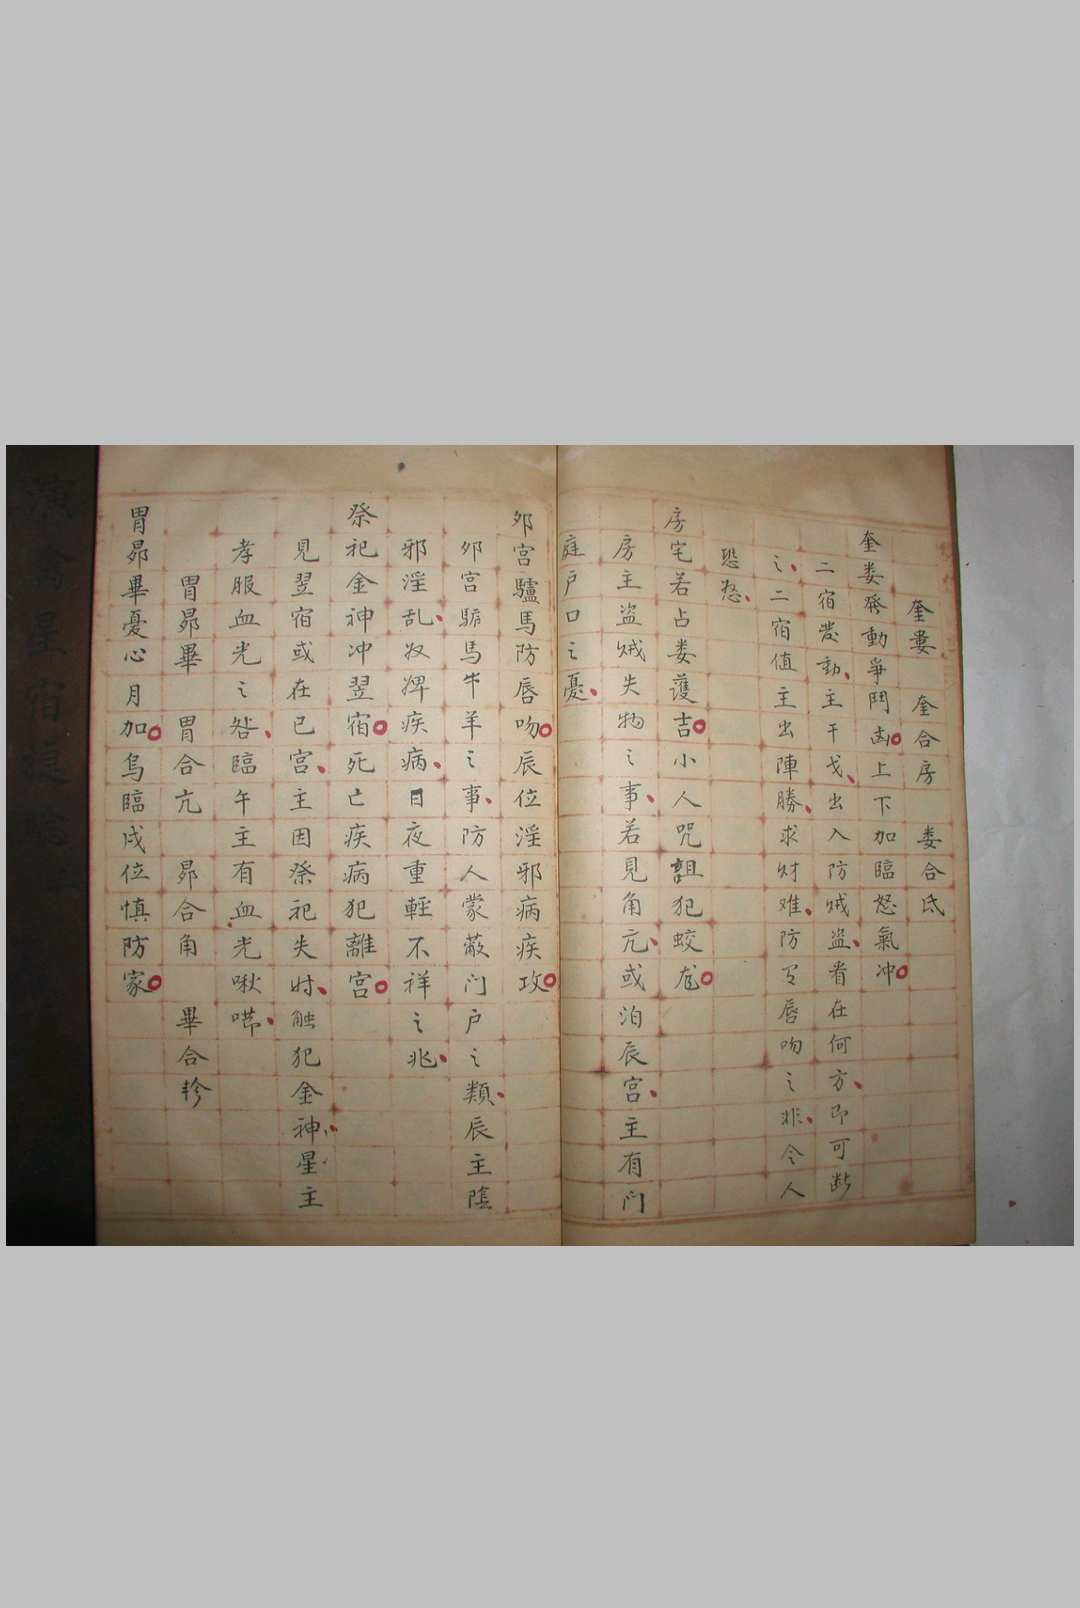 奎婁　奎合房　娄合氐
奎娄發動爭鬥凶上下加臨怒氣冲
二宿發動主干戈出入防賊盜看在何方即可断
之二宿值主出陣勝求财难防口唇吻之非令人
恐怒
房宅若占娄護吉小人咒詛犯蛟尨
房主盗贼失物之事若見角亢或泊辰宫主有门
庭户口之憂
夘宫驢馬防唇吻辰位淫邪病疾攻
夘宫驢馬牛羊之事防人蒙蔽门户之類辰主陰
邪淫乱奴婢疾病日夜重輕不祥之兆
祭祀金神冲翌宿死亡疾病犯離宫
見翌宿或在巳宫主因祭祀失时触犯金神星主
孝服血光之咎臨午主有血光啾唧
胃昴畢　胃合亢　昴合角　畢合軫
胃昴畢憂心月加烏臨戌位慎防家
星宿